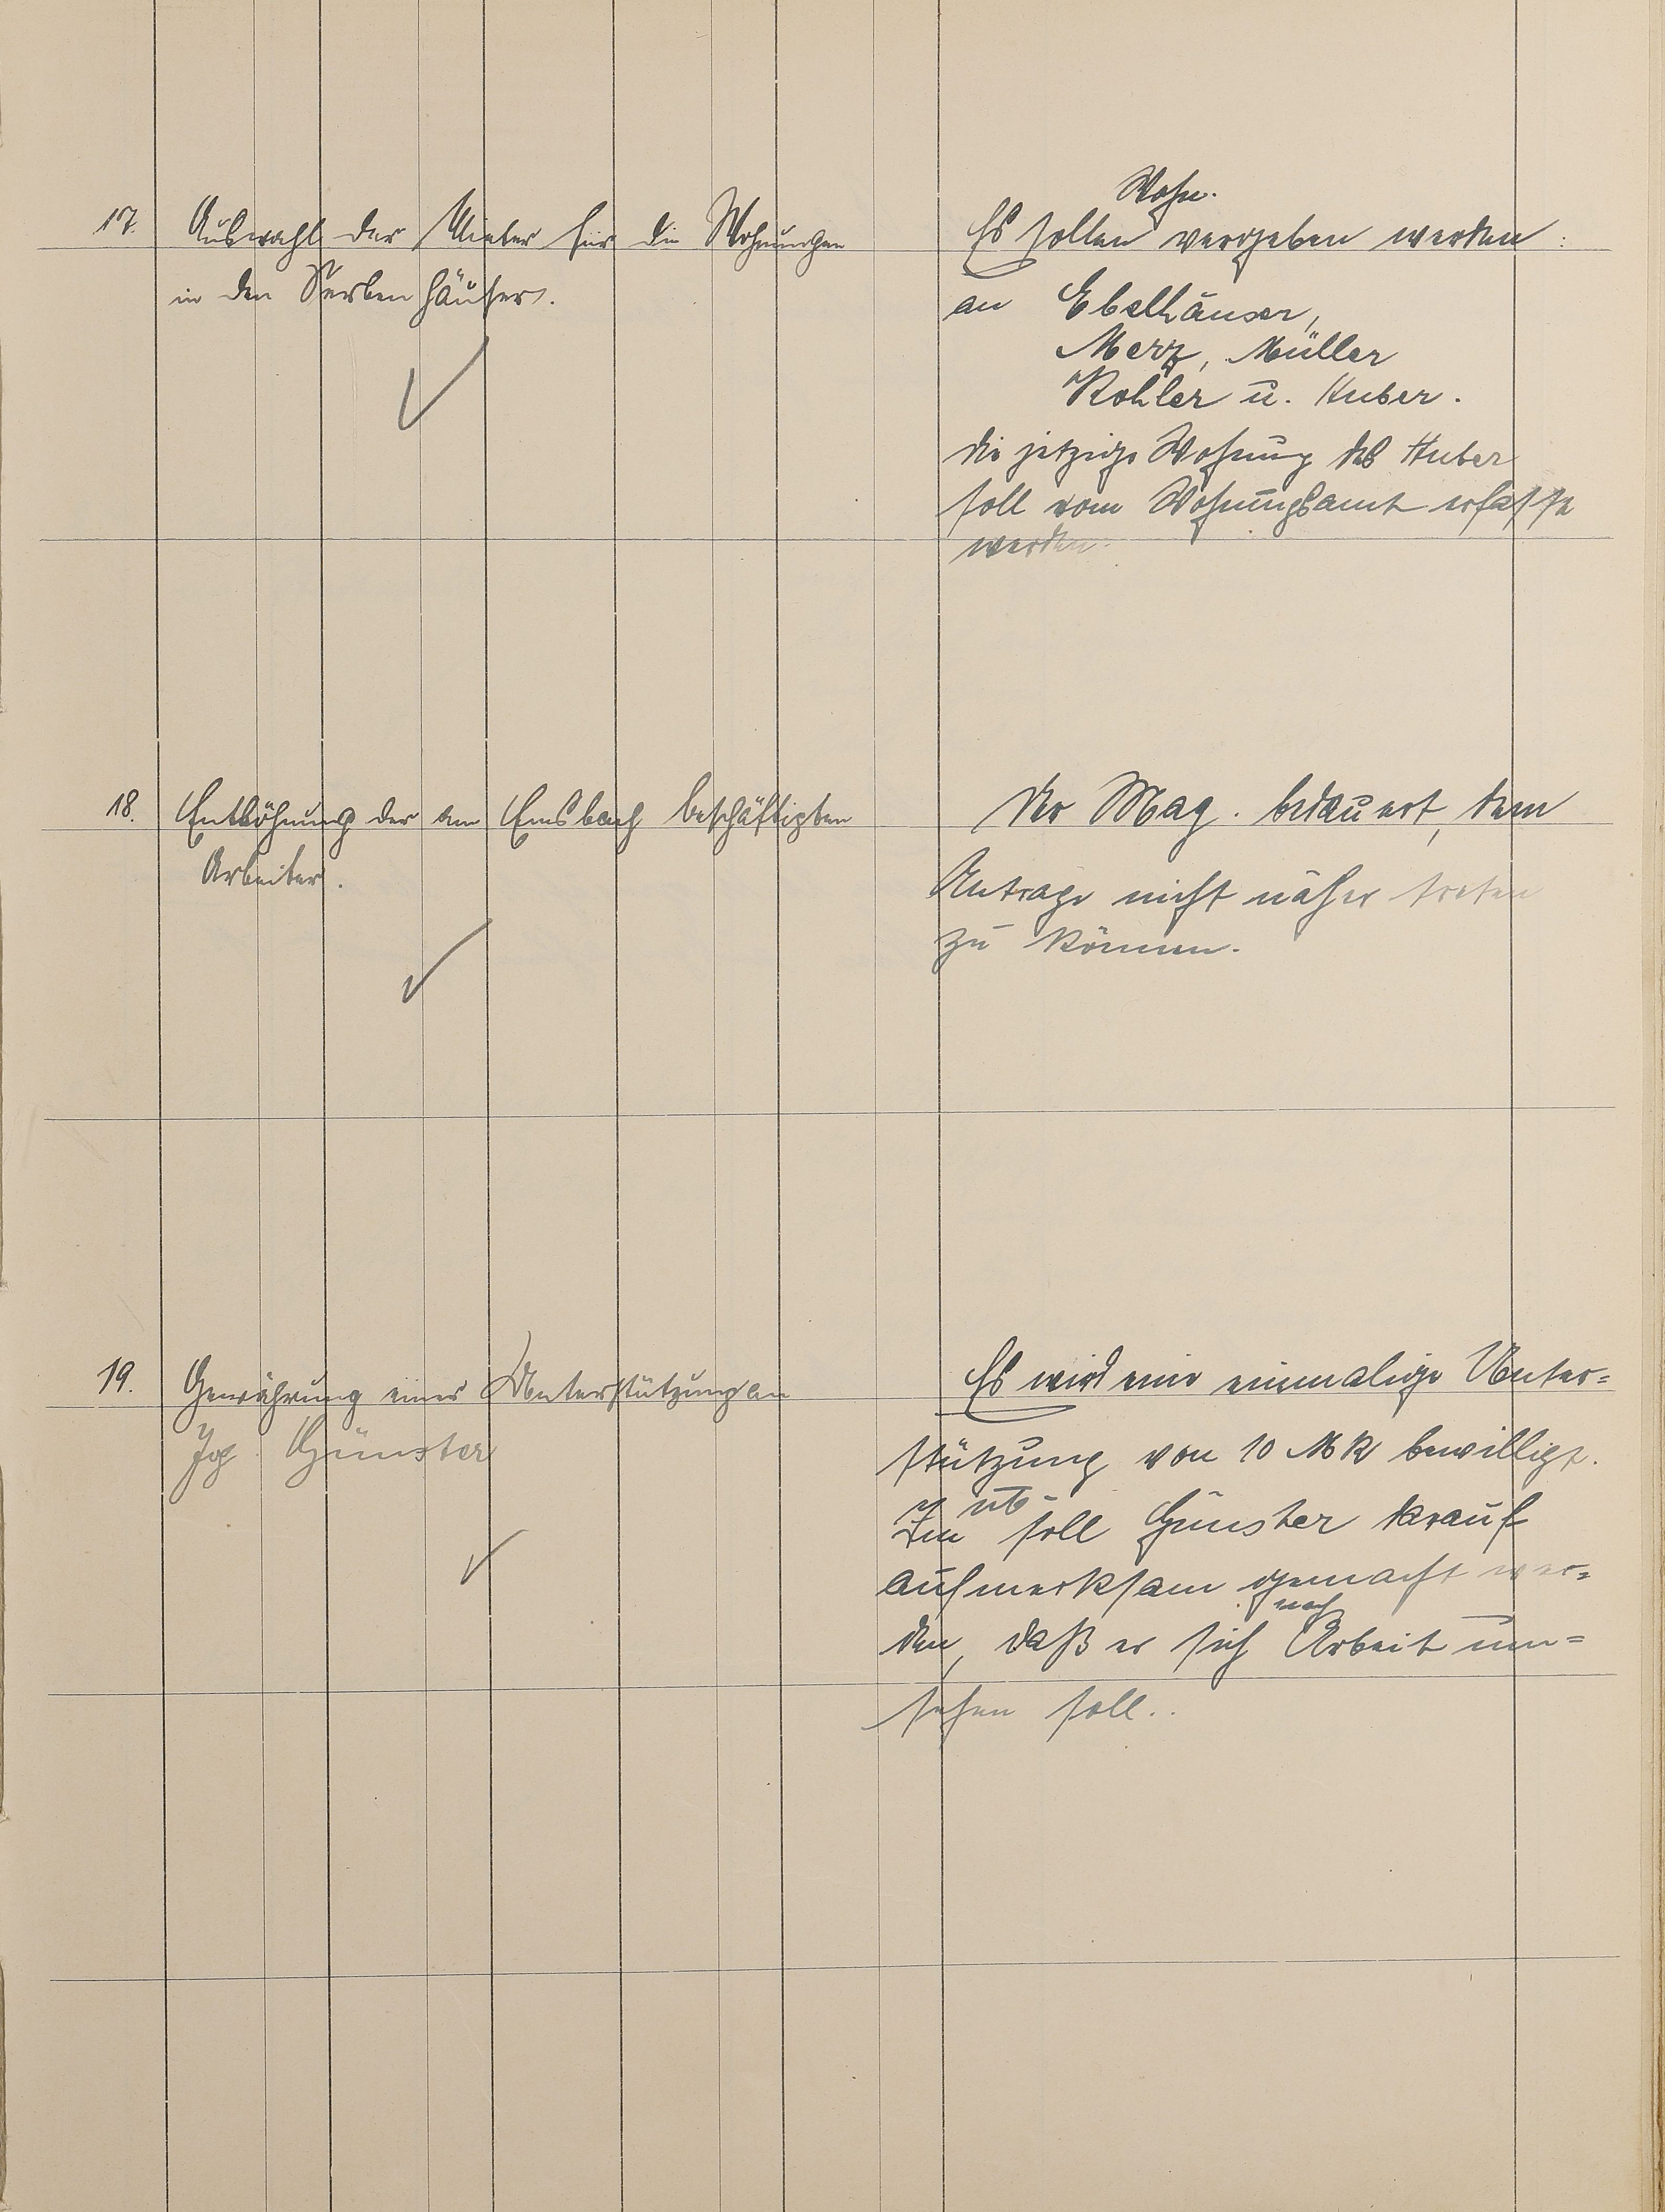 17. Auswahl der Mieter für die Wohnungen
in den Serbenhäuser.
Wohn.
Es sollen vergeben werden:
an Ebelhäuser,
Merz, Müller
Kohler u. Huber.
die jetzige Wohnung des Huber
soll vom Wohnungsamt erfaßt
werden.
18. Entlöhnung der am Emsbach beschäftigten
Arbeiter.
Der Mag. bedauert, dem
Antrage nicht näher treten
zu können.
19. Gewährung einer Unterstützung an
Jos. Günster
Es wird eine einmalige Unter=
stützung von 10 MK bewilligt.
Im üb. soll Günster darauf
aufmerksam gemacht wer=
den, daß er sich nach Arbeit um=
sehen soll.